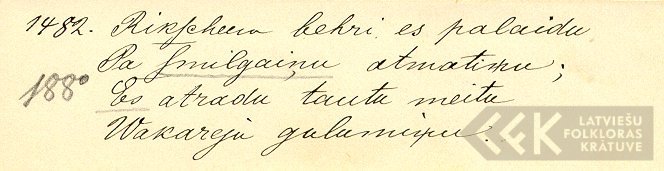 1482. Rikscheem behri es palaidu
Pa smilgaiņu atmatiņu;
188° Es atradu tautu meitu
Wakareju gulumiņu.
LATVIEŠU
FOLKLORAS
KRĀTUVE